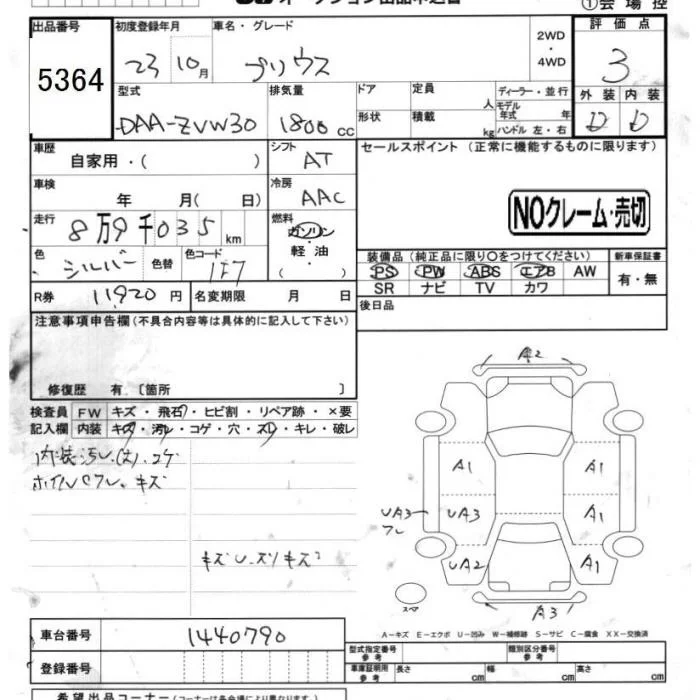 ①会場控
出品番号 初度登録年月 車名・グレード 2WD ・ 4WD 評価点
5364 23 10月 プリウス 3
型式 排気量 ドア 定員 人 ディーラー・並行 外装 内装
DAA-ZVW30 1800 cc 形状 積載 kg モデル年式 年 ハンドル 左・右 D D
車歴 自家用・( ) シフト AT セールスポイント (正常に機能するものに限ります)
車検 年 月( 日) 冷房 AAC
NOクレーム・売切
走行 8万9千035 km 燃料 ガソリン・軽油 ( )
色 シルバー 色替 色コード 1F7
装備品 (純正品に限り〇をつけてください) 新車保証書
PS PW ABS エアB AW 有・無
SR ナビ TV カワ
R券 11,920 円 名変期限 月 日 後日品
注意事項申告欄 (不具合内容等は具体的に記入して下さい)
修復歴 有.〔箇所 〕
検査員 FW キズ・飛石・ヒビ割・リペア跡・×要
記入欄 内装 キズ・汚レ・コゲ・穴・スレ・キレ・破レ
A2
A1 A1
UA3 UA3 A1
フレ
UA2 A1
スペア
A3
A-キズ E-エクボ U-凹み W-補修跡 S-サビ C-腐食 XX-交換済
車台番号 1440790
登録番号
型式指定番号 参考 類別区分番号 参考
車庫証明用 参考 長さ cm 幅 cm 高さ cm
希望出品コーナー